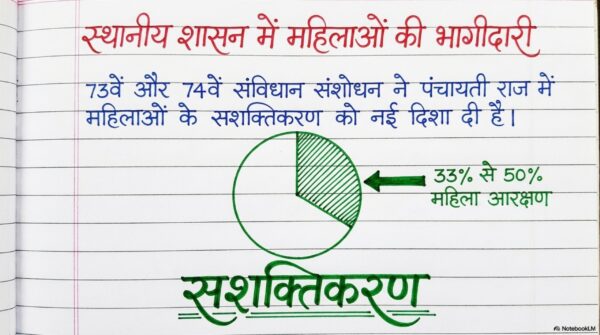 स्थानीय शासन में महिलाओं की भागीदारी
73वें और 74वें संविधान संशोधन ने पंचायती राज में
महिलाओं के सशक्तिकरण को नई दिशा दी है।
33% से 50%
महिला आरक्षण
सशक्तिकरण
NotebookLM